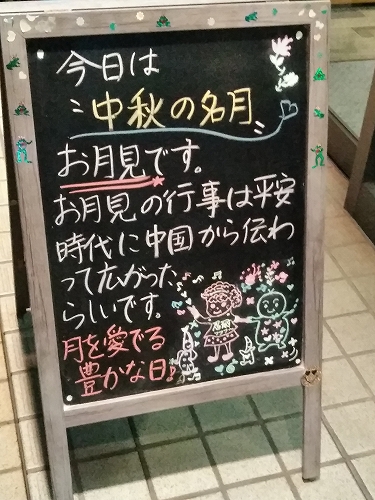 今日は
中秋の名月
お月見です。
お月見の行事は平安
時代に中国から伝わ
って広がった
らしいです。
月を愛でる
豊かな日♪